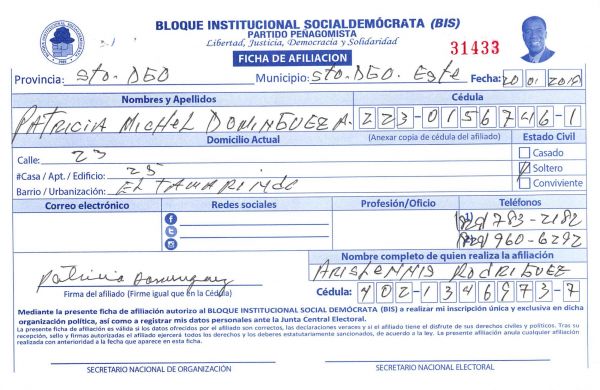 BLOQUE INSTITUCIONAL SOCIALDEMÓCRATA (BIS)
PARTIDO PEÑAGOMISTA
Libertad, Justicia, Democracia y Solidaridad
31433
FICHA DE AFILIACION
Provincia: Sto. DGO Municipio: Sto. DGO. Este Fecha: 20 01 2018
Nombres y Apellidos Cédula
PATRICIA MICHEL DOMINGUEZ A. 223-0156746-1
Domicilio Actual (Anexar copia de cédula del afiliado) Estado Civil
Calle: 23 Casado
#Casa / Apt. / Edificio: 25 Soltero
Barrio / Urbanización: EL TAMARINDO Conviviente
Correo electrónico Redes sociales Profesión/Oficio Teléfonos
(829) 783-2182
(829) 960-6292
Nombre completo de quien realiza la afiliación
Patricia Dominguez ARISLENNIS RODRIGUEZ
Firma del afiliado (Firme igual que en la Cédula) Cédula: 402-1346973-7
Mediante la presente ficha de afiliación autorizo al BLOQUE INSTITUCIONAL SOCIAL DEMÓCRATA (BIS) a realizar mi inscripción única y exclusiva en dicha
organización política, así como a registrar mis datos personales ante la Junta Central Electoral.
La presente ficha de afiliación es válida si los datos ofrecidos por el afiliado son correctos, las declaraciones veraces y si el afiliado tiene el disfrute de sus derechos civiles y políticos. Tras su
recepción, sello y firmas autorizadas el afiliado ejercerá todos los derechos y los deberes estatutariamente sancionados, de acuerdo a la ley. La presente afiliación anula cualquier afiliación
realizada con anterioridad a la fecha que aparece en esta ficha.
SECRETARIO NACIONAL DE ORGANIZACIÓN SECRETARIO NACIONAL ELECTORAL